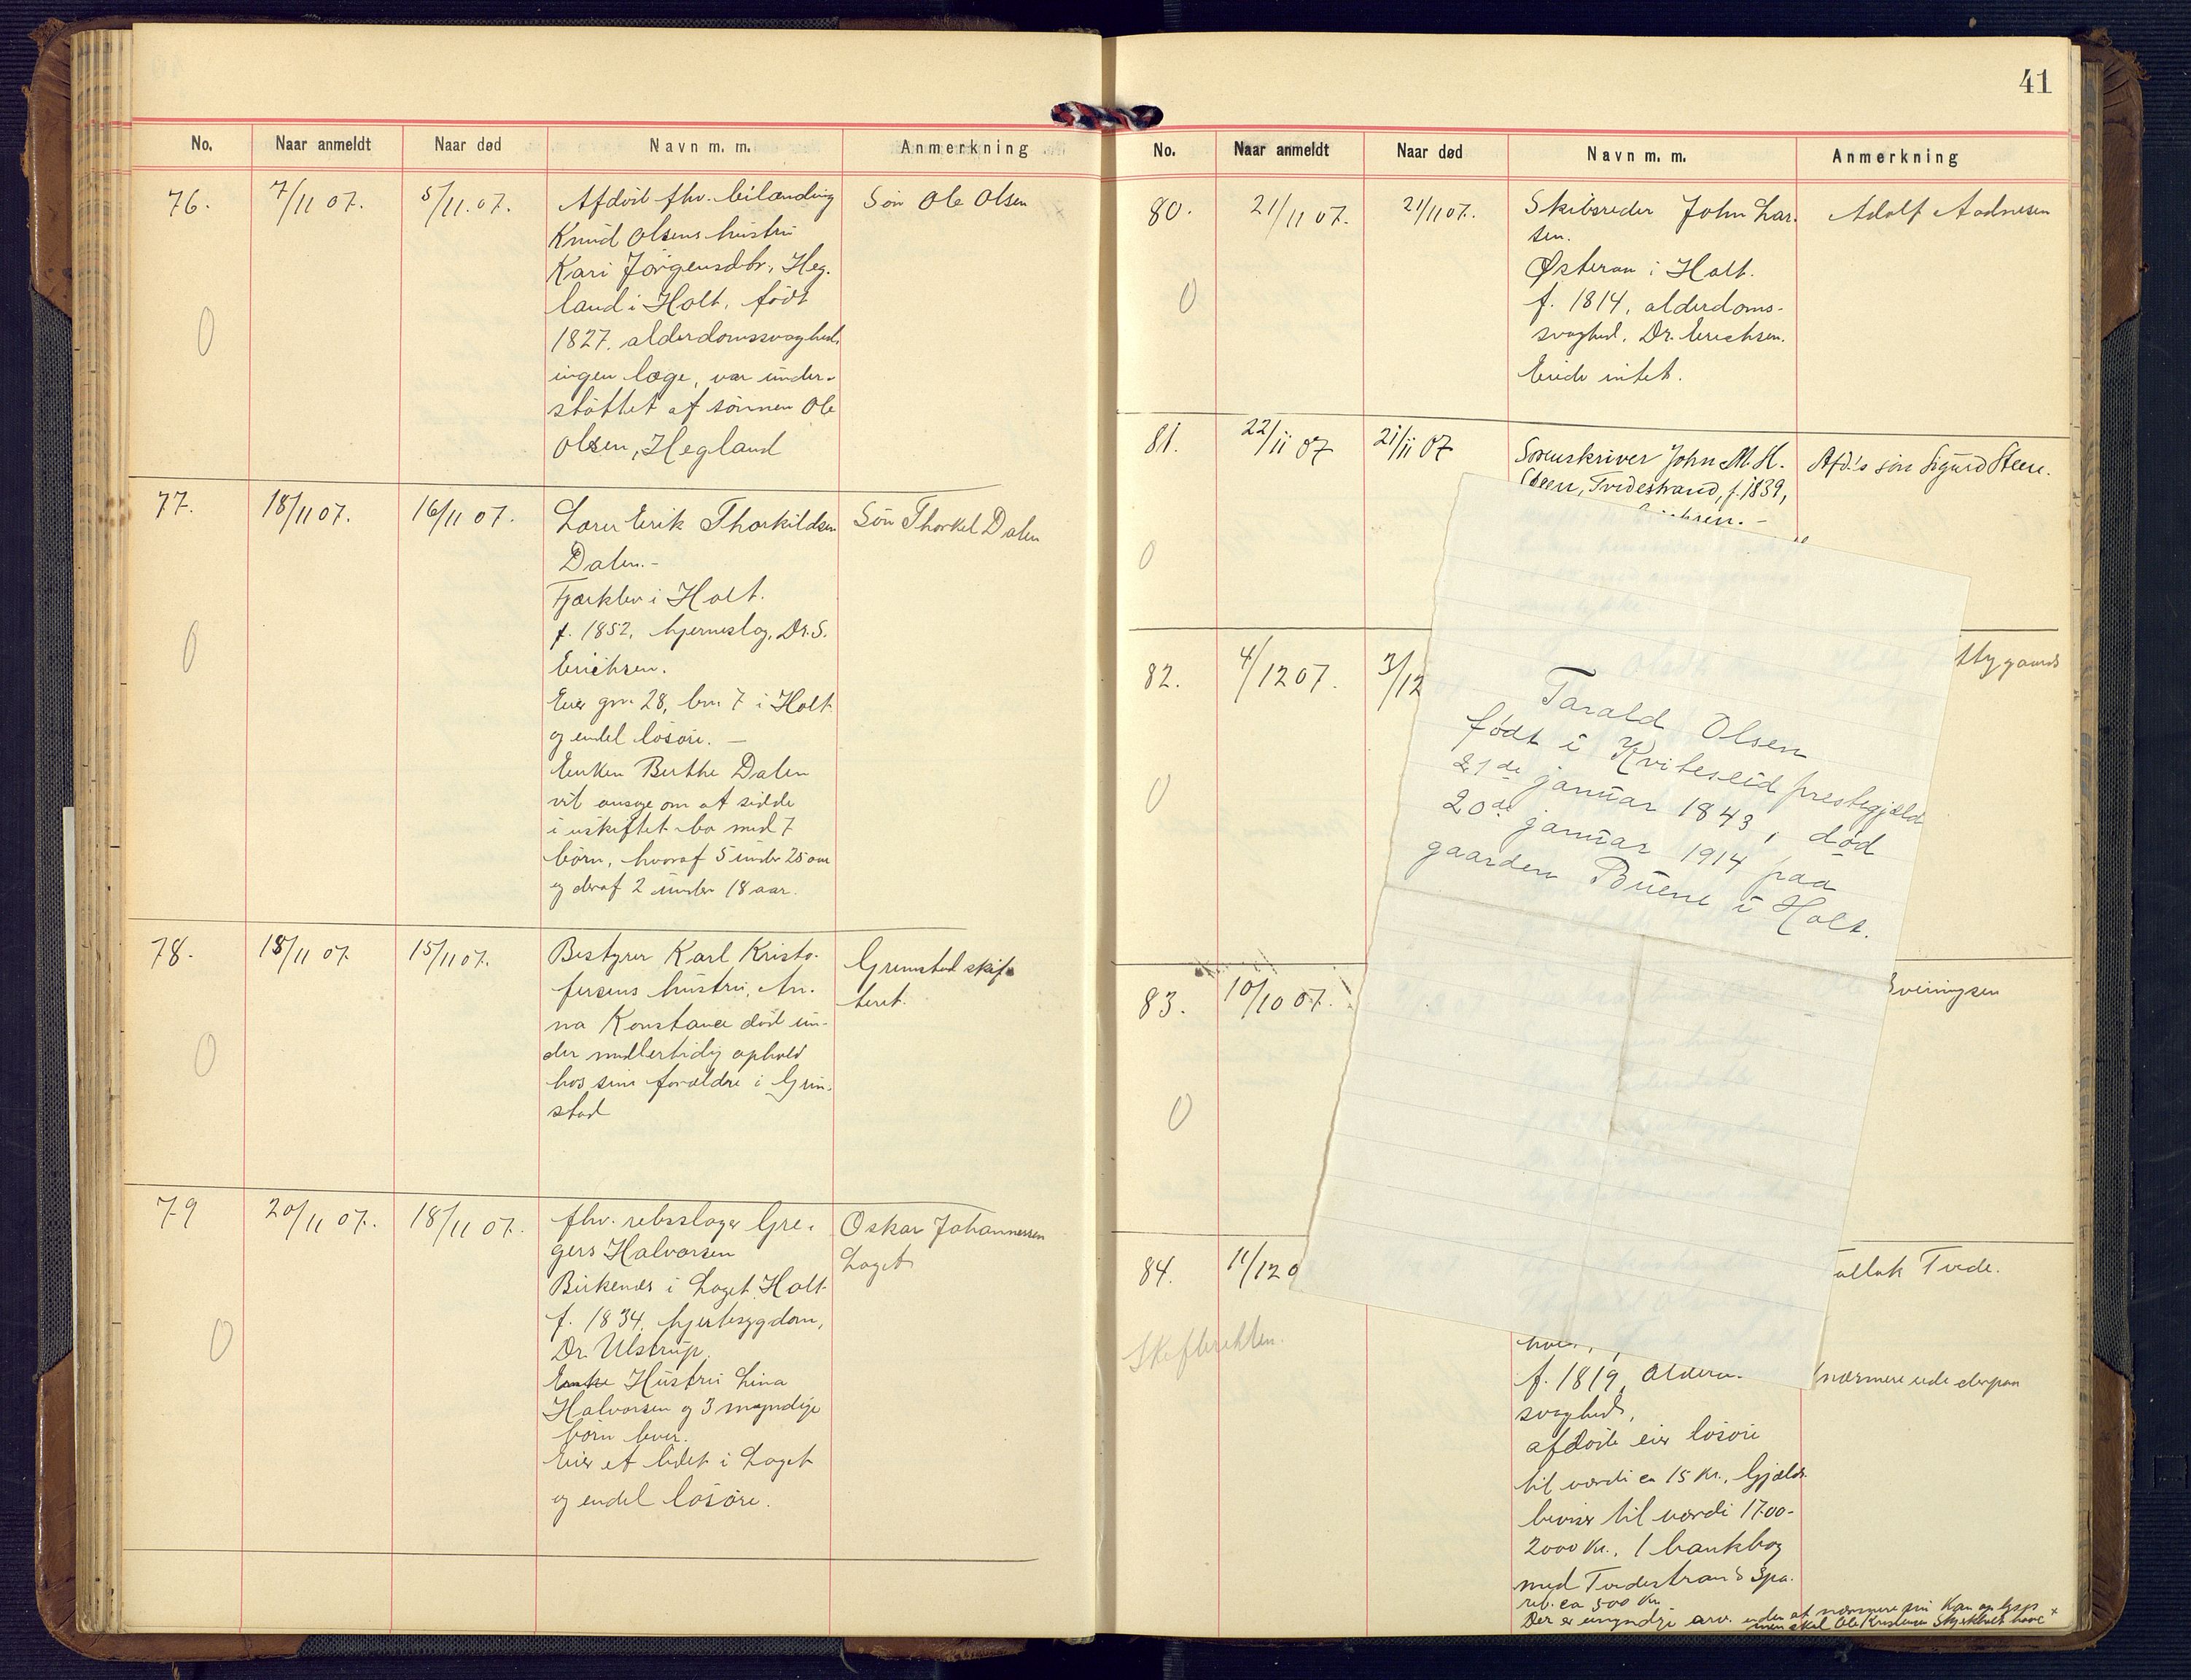 41
No.
Naar anmeldt
Naar død
Navn m. m.
Anmerkning
76.
7/11 07.
5/11.07.
Afdød fhv. leilænding
Knud Olsens hustru
Kari Jørgensdtr., Heg-
land i Holt, født
1827. alderdomssvaghed,
ingen læge, var under-
støttet af sønnen Ole
Olsen, Hegland
Søn Ole Olsen
0
77.
18/11 07.
16/11 07.
Lærer Erik Thorkildsen
Dalen.-
Fjærkleiv i Holt.
f. 1852, hjerneslag, Dr. S.
Erichsen.
Eier gn. 28, bn. 7 i Holt
og endel løsøre. —
Enken Berthe Dalen
vil ansøge om at sidde
i uskiftet bo med 7
børn, hvoraf 5 under 25 aar
og deraf 2 under 18 aar.
Søn Thorkel Dalen
0
78.
18/11 07.
15/11 07.
Bestyrer Karl Kristo-
fersens hustru, An-
na Konstance død un-
der midlertidig ophold
hos sine forældre i Grim-
stad
Grimstad skif-
teret.
0
79
20/11 07.
18/11 07.
fhv. rebslager Gre-
gers Halvorsen
Birkenes i Laget, Holt
f. 1834, hjertesygdom,
Dr. Ulstrup.
Enke Hustru Lina
Halvorsen og 3 myndige
børn lever.
Eier et lidet i Laget
og endel løsøre.
Oskar Johannessen
Laget
0
No.
Naar anmeldt
Naar død
Navn m. m.
Anmerkning
80.
21/11 07.
21/11 07.
Skibsreder John Lar-
sen.
Østeraa i Holt.
f. 1814, alderdoms-
svaghed, Dr. Erichsen.
Eiede intet.
Adolf Aadnesen
0
81.
22/11 07
21/11 07
Sorenskriver John M. H.
Steen, Tvedestrand, f. 1839,
Afd.'s søn Sigurd Steen.
0
82.
4/12 07.
3/12
0
83.
10/10 07.
0
84.
11/12 0
Skifteretten.
Tarald Olsen
født i Kviteseid prestegjæld
21de januar 1843, død
20de januar 1914 paa
gaarden Buene i Holt.
Tvede.
f. 1819,
svaghed,
afdøde eier løsøre
til værdi ca 15 Kr., Gjælds-
beviser til værdi 1700-
2000 Kr., 1 bankbog
med Tvedestrand Spa-
reb. ca 500 Kr.
nærmere rede derpaa